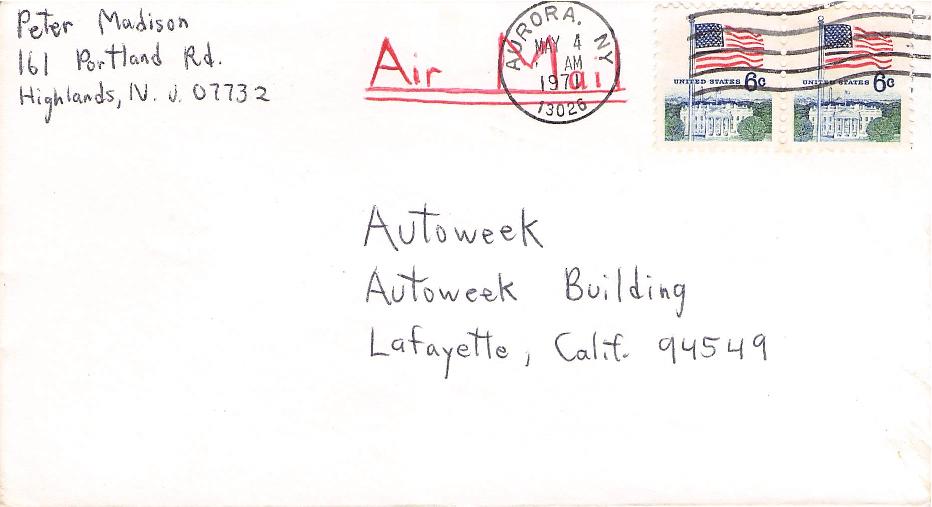 Peter Madison
161 Portland Rd.
Highlands, N. J. 07732
Air Mail
AURORA, NY
MAY 4
AM
1971
13026
UNITED STATES 6c
UNITED STATES 6c
Autoweek
Autoweek Building
Lafayette, Calif. 94549